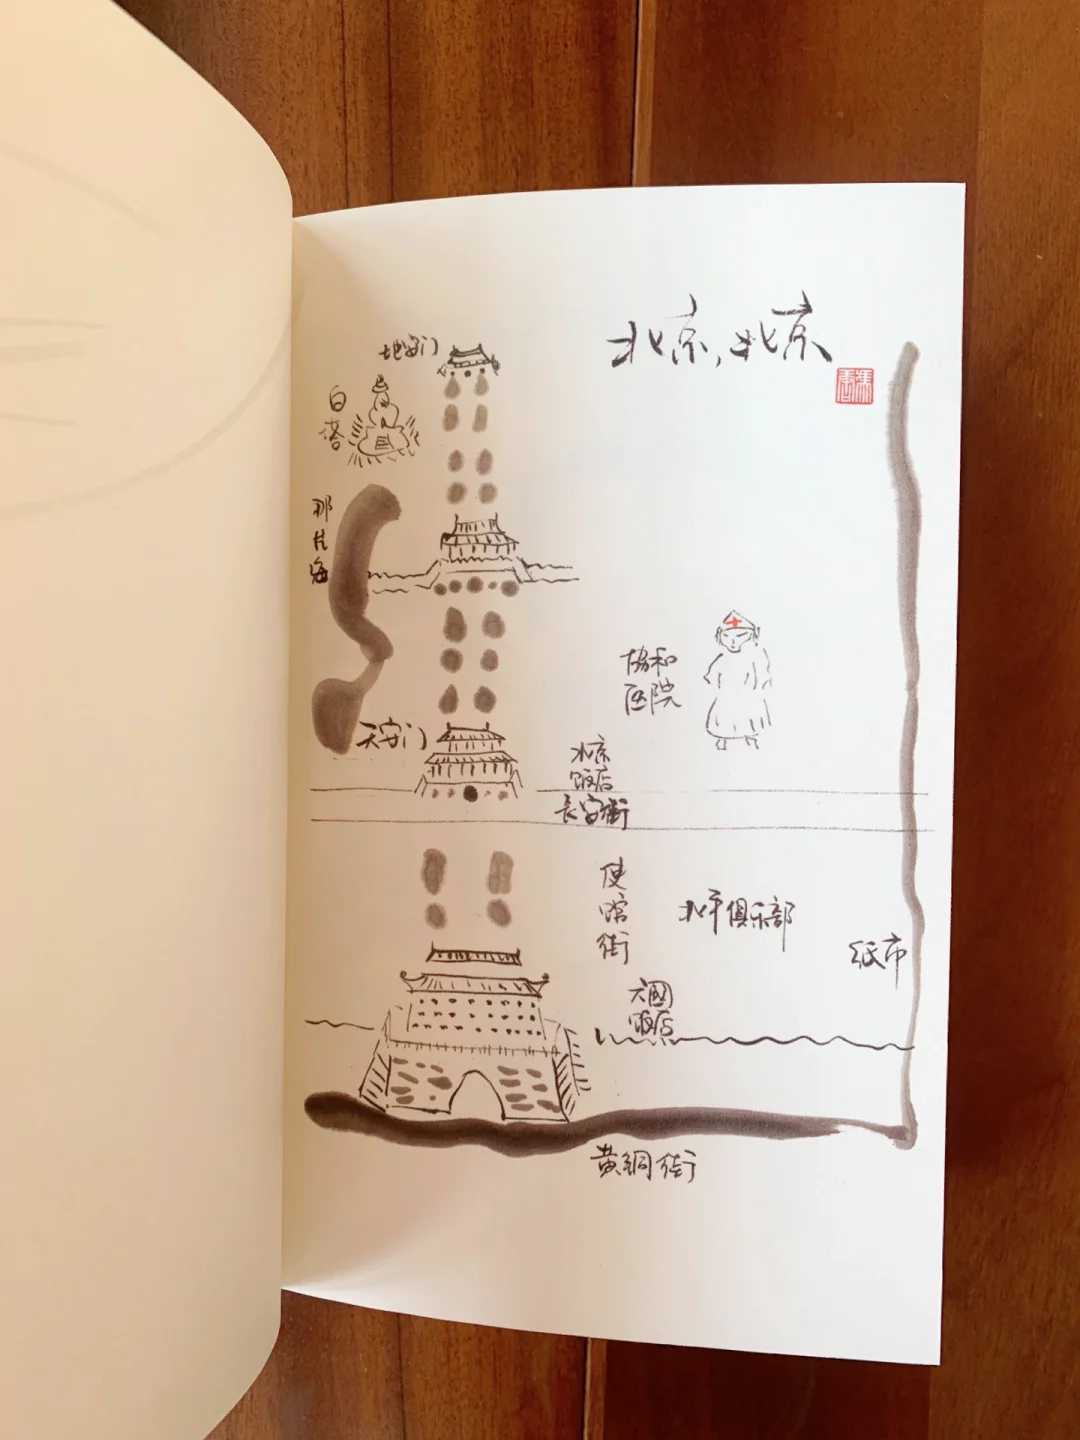 北京，北京
馮唐
地安门
白塔
那片海
天安门
协和
医院
北京
饭店
长安街
使馆街
北平俱乐部
纸市
六國
饭店
黄铜街